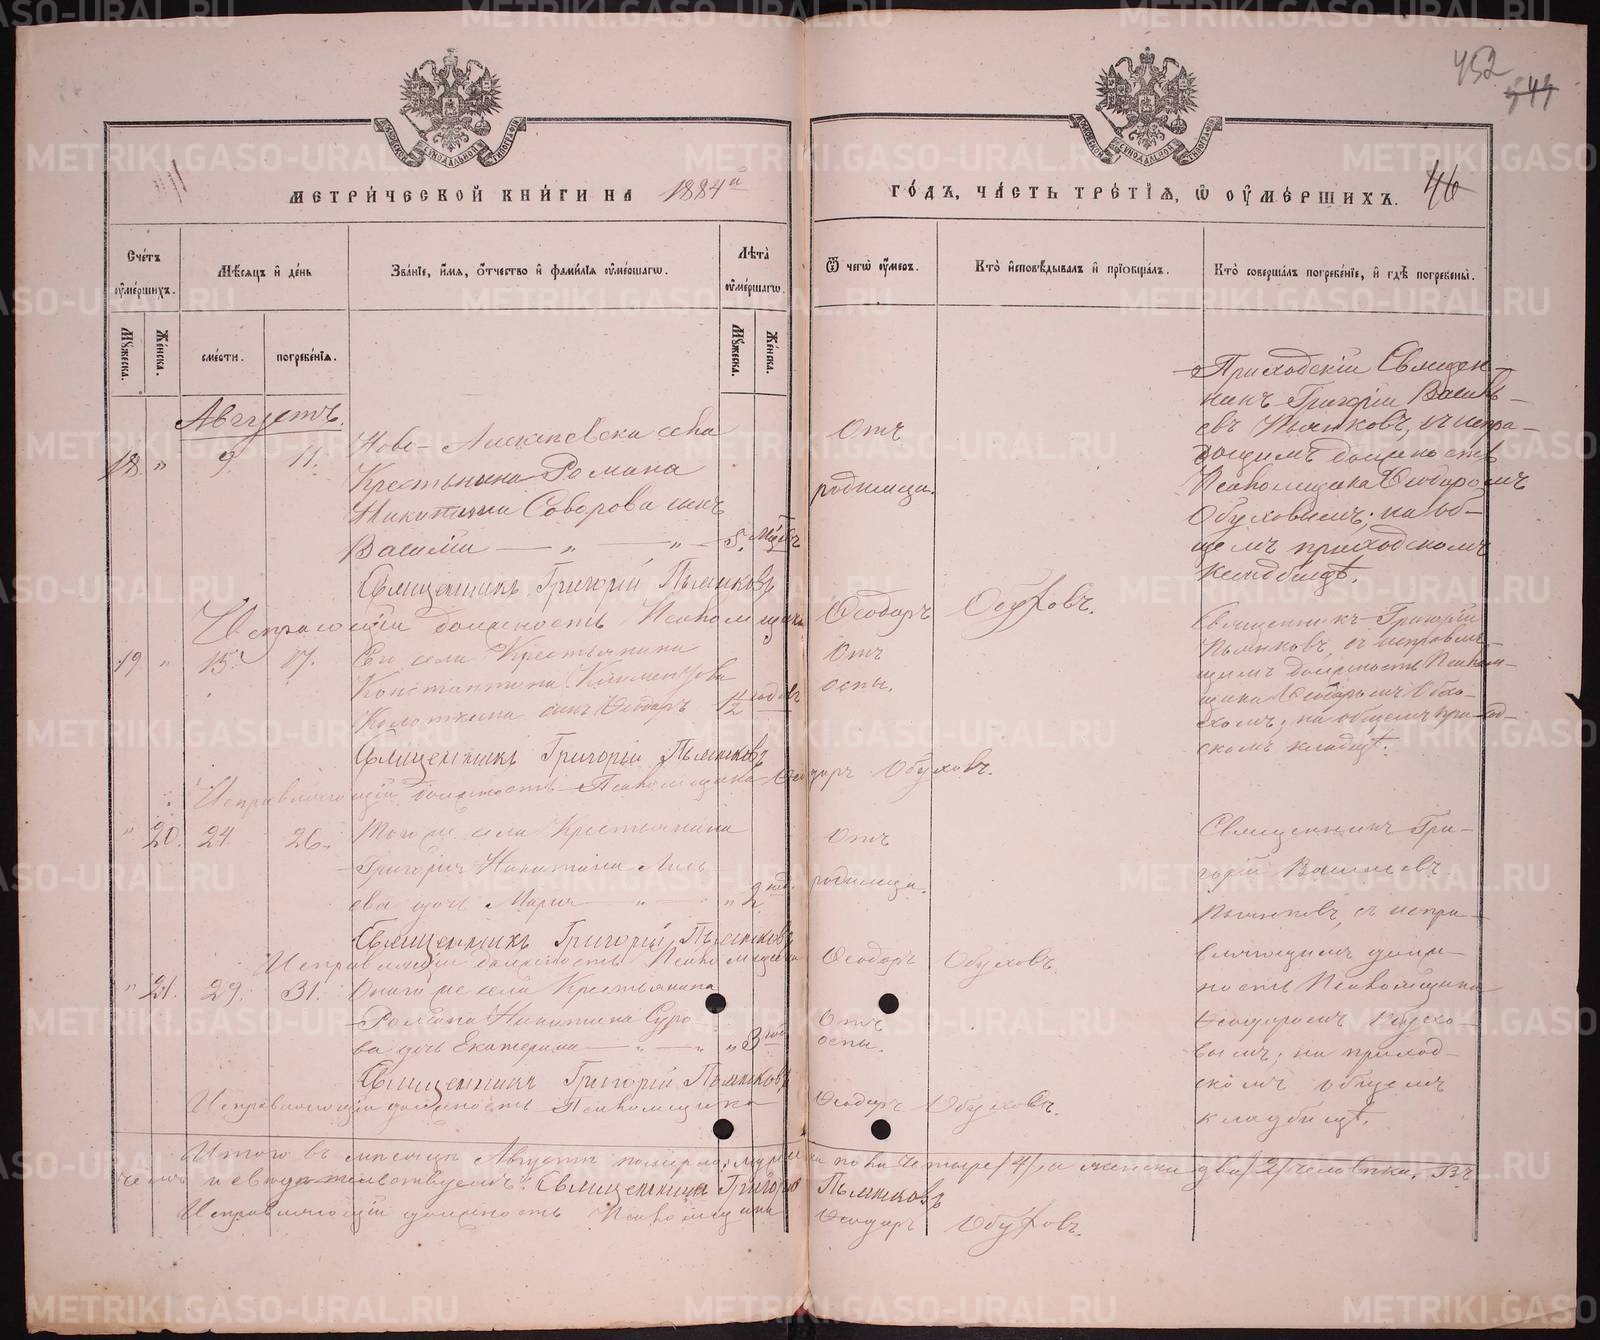 452
544
46
МЕТРИ́ЧЕСКОЙ КНИ́ГИ НА 1884й
ГО́ДЪ, ЧА́СТЬ ТРЕ́ТІѦ, Ѡ ОУ҆МЕ́РШИХЪ.
Сче́тъ оу҆ме́ршихъ.
Мѣ́сѧцъ и҆ де́нь
Зва́ніе, и҆́мѧ, ѻ҆́тчество и҆ фами́лія оу҆ме́ршагѡ.
Лѣ́та оу҆ме́ршагѡ.
Ѿ чегѡ̀ оу҆́меръ.
Кто̀ и҆сповѣ́дывалъ и҆ прїѡбща́лъ.
Кто̀ соверша́лъ погребе́ніе, и҆ гдѣ̀ погребены̀.
Мꙋ́жеска.
Же́нска.
сме́рти.
погребе́нія.
Мꙋ́жеска.
Же́нска.
Августъ.
18. " 9. 11.
Крестьянина Романа
Никитина Соворова сынъ
Василій — " — " — 5. мцъ
Отъ
родимца.
Приходскій Священ-
никъ Григорій Василь-
евъ Пьянковъ, съ испра-
дящимъ должность
Псаломщика Ѳеодоромъ
Обуховымъ; на об-
щемъ приходскомъ
кладбищѣ.
Священникъ Григорій Пьянковъ
Исправляющій должность Псаломщика Ѳеодоръ Обуховъ.
19 " 15. 17. Его села Крестьянина
Константина Климентова
сынъ Ѳеодоръ 1½ годовъ
Отъ
оспы.
Священникъ Григорій
Пьянковъ, съ исправляю-
щимъ должность Псалом-
щика Ѳеодоромъ Обхо-
хомъ; на общемъ приход-
скомъ кладбищѣ.
Священникъ Григорій Пьянковъ
Исправляющій должность Псаломщика Ѳеодоръ Обуховъ.
" 20. 24. 26. Того же села Крестьянина
Григорія Никитина
ева дочь Марія — " — " 2 год.
Отъ
родимца.
Священникъ Гри-
горій Васильевъ
Пьянковъ, съ испра-
вляющимъ долж-
ность Псаломщика
Ѳеодоромъ Обухо-
вымъ; на приход-
скомъ общемъ
кладбищѣ.
Священникъ Григорій Пьянковъ
Исправляющій должность Псаломщика Ѳеодоръ Обуховъ.
" 21. 29. 31. Онаго же села Крестьянина
Романа Никитина Суро
ва дочь Екатерина — " — " 3 год
Отъ
оспы.
Священникъ Григорій Пьянковъ
Исправляющій должность Псаломщика Ѳеодоръ Обуховъ.
Итого въ мѣсяцѣ Августѣ померло: мужеска пола четыре /4/, а женска два /2/ человѣка. Въ
чемъ и свидѣтельствуемъ: Священникъ Григорій Пьянковъ
Исправляющій должность Псаломщика Ѳеодоръ Обуховъ.
METRIKI.GASO-URAL.RU